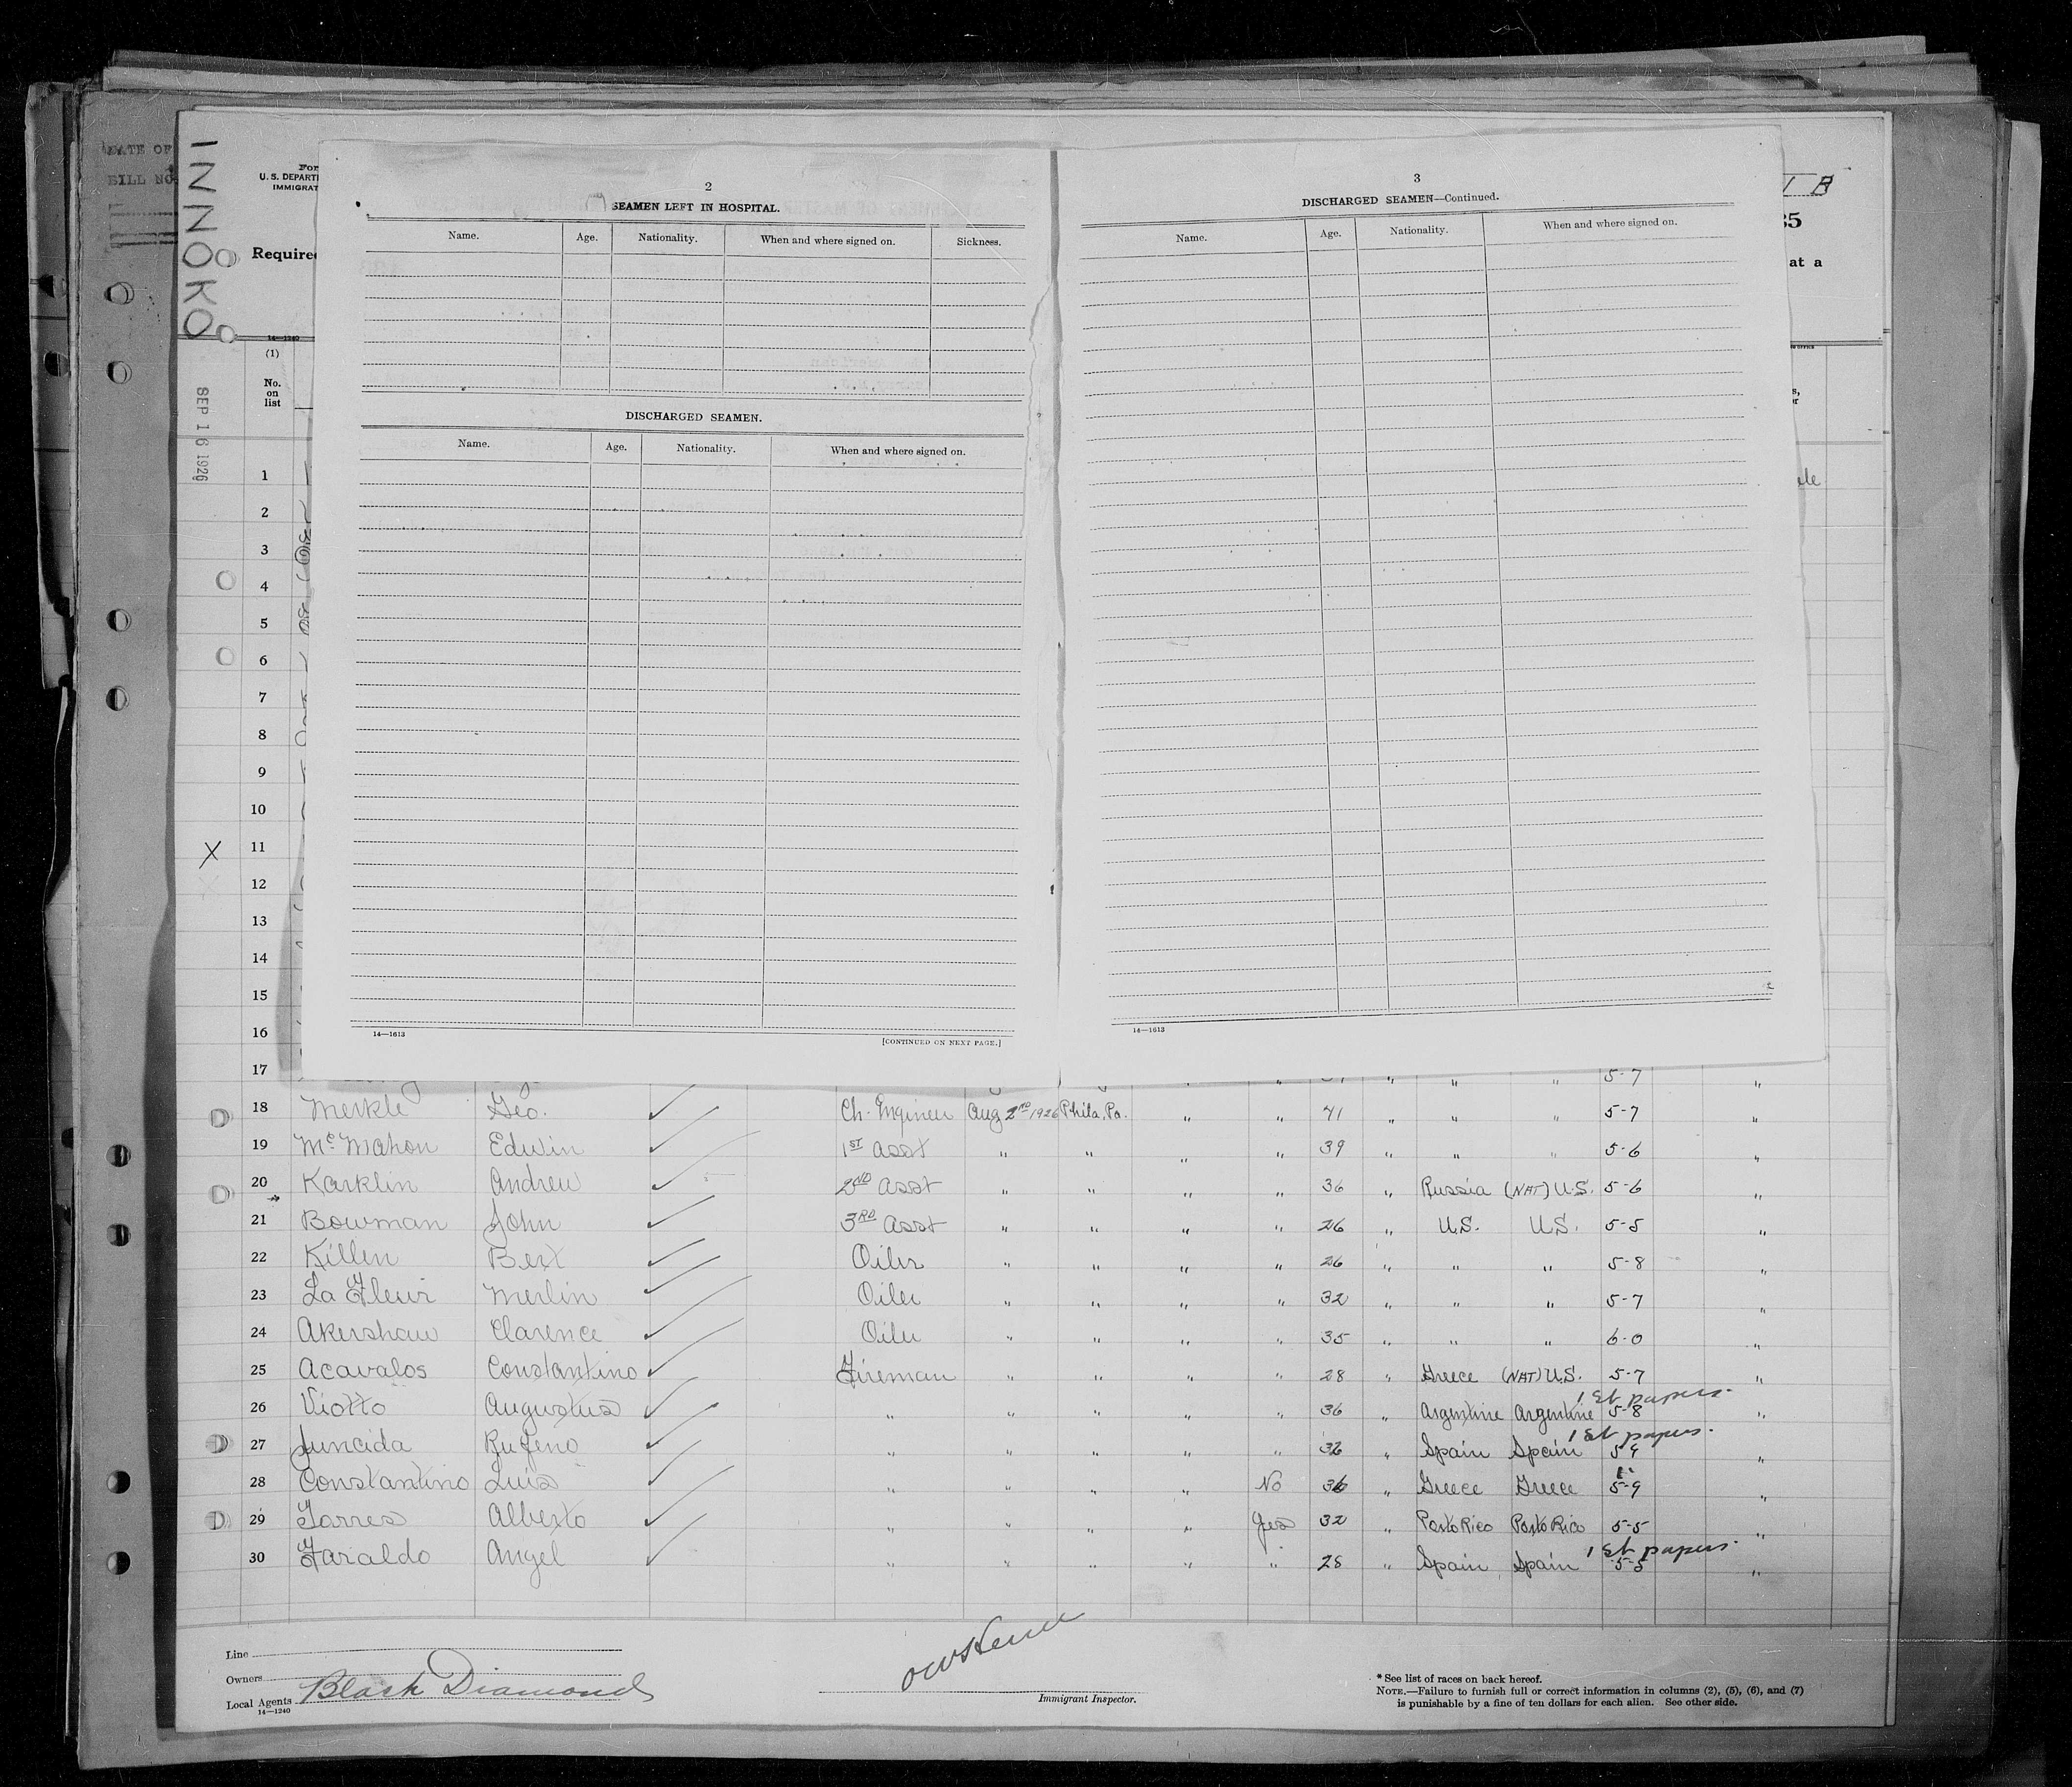 DATE OF
BILL NO.
INNOKO
SEP 16 1926
For
U. S. DEPARTM
IMMIGRAT
Require
14—1240
(1)
No.
on
list
2
SEAMEN LEFT IN HOSPITAL.
Name. Age. Nationality. When and where signed on. Sickness.
DISCHARGED SEAMEN.
Name. Age. Nationality. When and where signed on.
14—1613
[CONTINUED ON NEXT PAGE.]
3
DISCHARGED SEAMEN—Continued.
Name. Age. Nationality. When and where signed on.
14—1613
35
at a
1
2
3
4
5
6
7
8
9
10
X 11
12
13
14
15
16
17 " " " " 5-7 "
18 Merkle Geo. ✓ Ch. Engineer Aug 2ND 1926 Phila, Pa. " " 41 " " " 5-7 "
19 McMahon Edwin ✓ 1ST Asst " " " " 39 " " " 5-6 "
20 Karklin Andrew ✓ 2ND Asst " " " " 36 " Russia (NAT) U.S. 5-6 "
21 Bowman John ✓ 3RD Asst " " " " 26 " U.S. U.S. 5-5 "
22 Killen Bert ✓ Oiler " " " " 26 " " " 5-8 "
23 La Fleur Merlin ✓ Oiler " " " " 32 " " " 5-7 "
24 Akershaw Clarence ✓ Oiler " " " " 35 " " " 6-0 "
25 Acavalos Constantino ✓ Fireman " " " " 28 " Greece (NAT) U.S. 5-7 "
26 Viotto Augustus ✓ " " " " " 36 " Argentine Argentine 1st papers. 5-8 "
27 Juncida Rufeno ✓ " " " " " 36 " Spain Spain 1st papers. 5-4 "
28 Constantino Luis ✓ " " " " No 36 " Greece Greece 5-9 "
29 Torres Alberto ✓ " " " " Yes 32 " Porto Rico Porto Rico 5-5 "
30 Faraldo Angel ✓ " " " " " 28 " Spain Spain 1st papers. 5-5 "
Line
Owners
Local Agents Black Diamond
14—1240
Immigrant Inspector.
* See list of races on back hereof.
NOTE.—Failure to furnish full or correct information in columns (2), (5), (6), and (7)
is punishable by a fine of ten dollars for each alien. See other side.